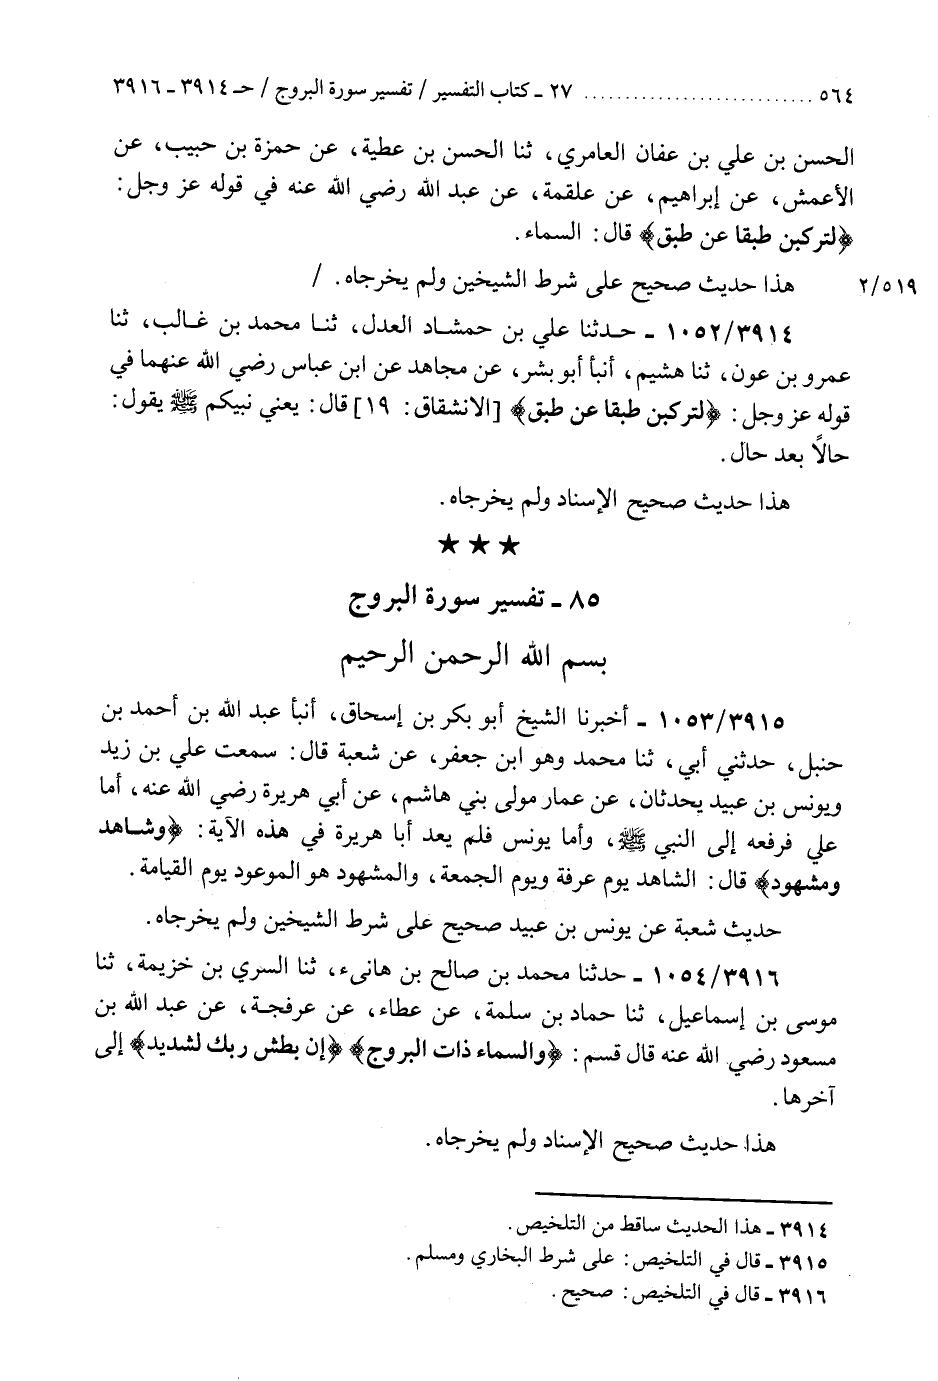 ٥٦٤ ............................ ٢٧ ـ كتاب التفسير / تفسير سورة البروج / حـ ٣٩١٤ ـ ٣٩١٦
الحسن بن علي بن عفان العامري، ثنا الحسن بن عطية، عن حمزة بن حبيب، عن
الأعمش، عن إبراهيم، عن علقمة، عن عبد الله رضي الله عنه في قوله عز وجل:
﴿لتركبن طبقا عن طبق﴾ قال: السماء.
هذا حديث صحيح على شرط الشيخين ولم يخرجاه. / ٢/٥١٩
١٠٥٢/٣٩١٤ ـ حدثنا علي بن حمشاد العدل، ثنا محمد بن غالب، ثنا
عمرو بن عون، ثنا هشيم، أنبأ أبو بشر، عن مجاهد عن ابن عباس رضي الله عنهما في
قوله عز وجل: ﴿لتركبن طبقا عن طبق﴾ [الانشقاق: ١٩] قال: يعني نبيكم ﷺ يقول:
حالاً بعد حال.
هذا حديث صحيح الإسناد ولم يخرجاه.
★★★
٨٥ ـ تفسير سورة البروج
بسم الله الرحمن الرحيم
١٠٥٣/٣٩١٥ ـ أخبرنا الشيخ أبو بكر بن إسحاق، أنبأ عبد الله بن أحمد بن
حنبل، حدثني أبي، ثنا محمد وهو ابن جعفر، عن شعبة قال: سمعت علي بن زيد
ويونس بن عبيد يحدثان، عن عمار مولى بني هاشم، عن أبي هريرة رضي الله عنه، أما
علي فرفعه إلى النبي ﷺ، وأما يونس فلم يعد أبا هريرة في هذه الآية: ﴿وشاهد
ومشهود﴾ قال: الشاهد يوم عرفة ويوم الجمعة، والمشهود هو الموعود يوم القيامة.
حديث شعبة عن يونس بن عبيد صحيح على شرط الشيخين ولم يخرجاه.
١٠٥٤/٣٩١٦ ـ حدثنا محمد بن صالح بن هانىء، ثنا السري بن خزيمة، ثنا
موسى بن إسماعيل، ثنا حماد بن سلمة، عن عطاء، عن عرفجة، عن عبد الله بن
مسعود رضي الله عنه قال قسم: ﴿والسماء ذات البروج﴾ ﴿إن بطش ربك لشديد﴾ إلى
آخرها.
هذا حديث صحيح الإسناد ولم يخرجاه.
٣٩١٤ ـ هذا الحديث ساقط من التلخيص.
٣٩١٥ ـ قال في التلخيص: على شرط البخاري ومسلم.
٣٩١٦ ـ قال في التلخيص: صحيح.